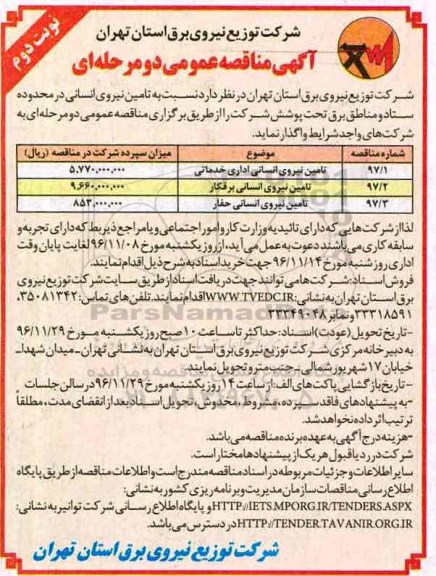 نوبت دوم
شرکت توزیع نیروی برق استان تهران
آگهی مناقصه عمومی دو مرحله‌ای
شرکت توزیع نیروی برق استان تهران در نظر دارد نسبت به تامین نیروی انسانی در محدوده
ستاد و مناطق برق تحت پوشش شرکت را از طریق برگزاری مناقصه عمومی دو مرحله‌ای به
شرکت‌های واجد شرایط واگذار نماید.
شماره مناقصه موضوع میزان سپرده شرکت در مناقصه (ریال)
۹۷/۱ تامین نیروی انسانی اداری خدماتی ۵,۷۷۰,۰۰۰,۰۰۰
۹۷/۲ تامین نیروی انسانی برقکار ۹,۶۶۰,۰۰۰,۰۰۰
۹۷/۳ تامین نیروی انسانی حفار ۸۵۳,۰۰۰,۰۰۰
لذا از شرکت‌هایی که دارای تائیدیه وزارت کار و امور اجتماعی و یا مراجع ذیربط که دارای تجربه و
سابقه کاری می‌باشند دعوت به عمل می‌آید، از روز یکشنبه مورخ ۹۶/۱۱/۰۸ لغایت پایان وقت
اداری روز شنبه مورخ ۹۶/۱۱/۱۴ جهت خرید اسناد به شرح ذیل اقدام نمایند.
فروش اسناد: شرکت‌ها می‌توانند جهت دریافت اسناد از طریق سایت شرکت توزیع نیروی
برق استان تهران به نشانی: WWW.TVEDC.IR اقدام نمایند. تلفن‌های تماس: ۳۵۰۸۱۳۴۲،
۳۳۳۱۸۵۹۱ و نمابر ۳۳۳۴۹۰۴۸
-تاریخ تحویل (عودت) اسناد: حداکثر تا ساعت ۱۰ صبح روز یکشنبه مورخ ۹۶/۱۱/۲۹
به دبیرخانه مرکزی شرکت توزیع نیروی برق استان تهران به نشانی تهران ـ میدان شهدا ـ
خیابان ۱۷ شهریور شمالی - جنب مترو تحویل نمایند.
-تاریخ بازگشایی پاکت‌های الف: از ساعت ۱۴ روز یکشنبه مورخ ۹۶/۱۱/۲۹ در سالن جلسات
-به پیشنهادهای فاقد سپرده، مشروط، مخدوش، تحویل اسناد بعد از انقضای مدت، مطلقا
ترتیب اثر داده نخواهد شد.
-هزینه درج آگهی به عهده برنده مناقصه می‌باشد.
شرکت در رد یا قبول هر یک از پیشنهادها مختار است.
سایر اطلاعات و جزئیات مربوطه در اسناد مناقصه مندرج است و اطلاعات مناقصه از طریق پایگاه
اطلاع رسانی مناقصات سازمان مدیریت و برنامه ریزی کشور به نشانی:
HTTP://IETS.MPORG.IR/TENDERS.ASPX و پایگاه اطلاع رسانی شرکت توانیر به نشانی:
HTTP://TENDER.TAVANIR.ORG.IR در دسترس می‌باشد.
شرکت توزیع نیروی برق استان تهران